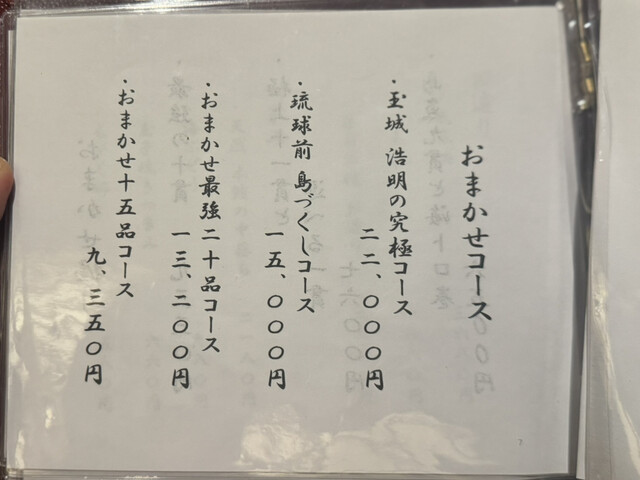 おまかせコース
・玉城 浩明の究極コース
二二、〇〇〇円
・琉球前 島づくしコース
一五、〇〇〇円
・おまかせ最強二十品コース
一三、二〇〇円
・おまかせ十五品コース
九、三五〇円